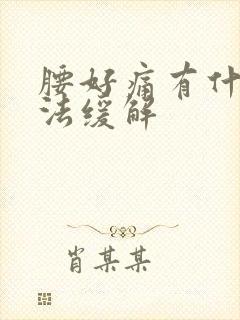 腰好痛有什
法缓解
肖某某